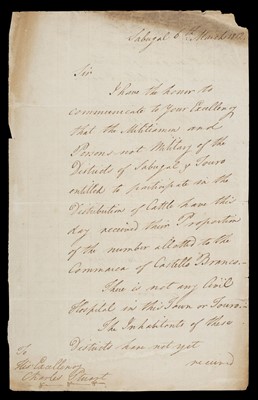 Sabugal 6th March 1812
Sir
I have the honor to
communicate to Your Excellency
that the Militiamen and
Persons not Military of the
Districts of Sabugal & Touro
entitled to participate in the
Distribution of Cattle have this
day received their Proportion
of the number allotted to the
Commarca of Castello Branco.
There is not any Civil
Hospital in this Town or Touro.
The Inhabitants of these
Districts have not yet
received
To
His Excellency
Charles Stuart